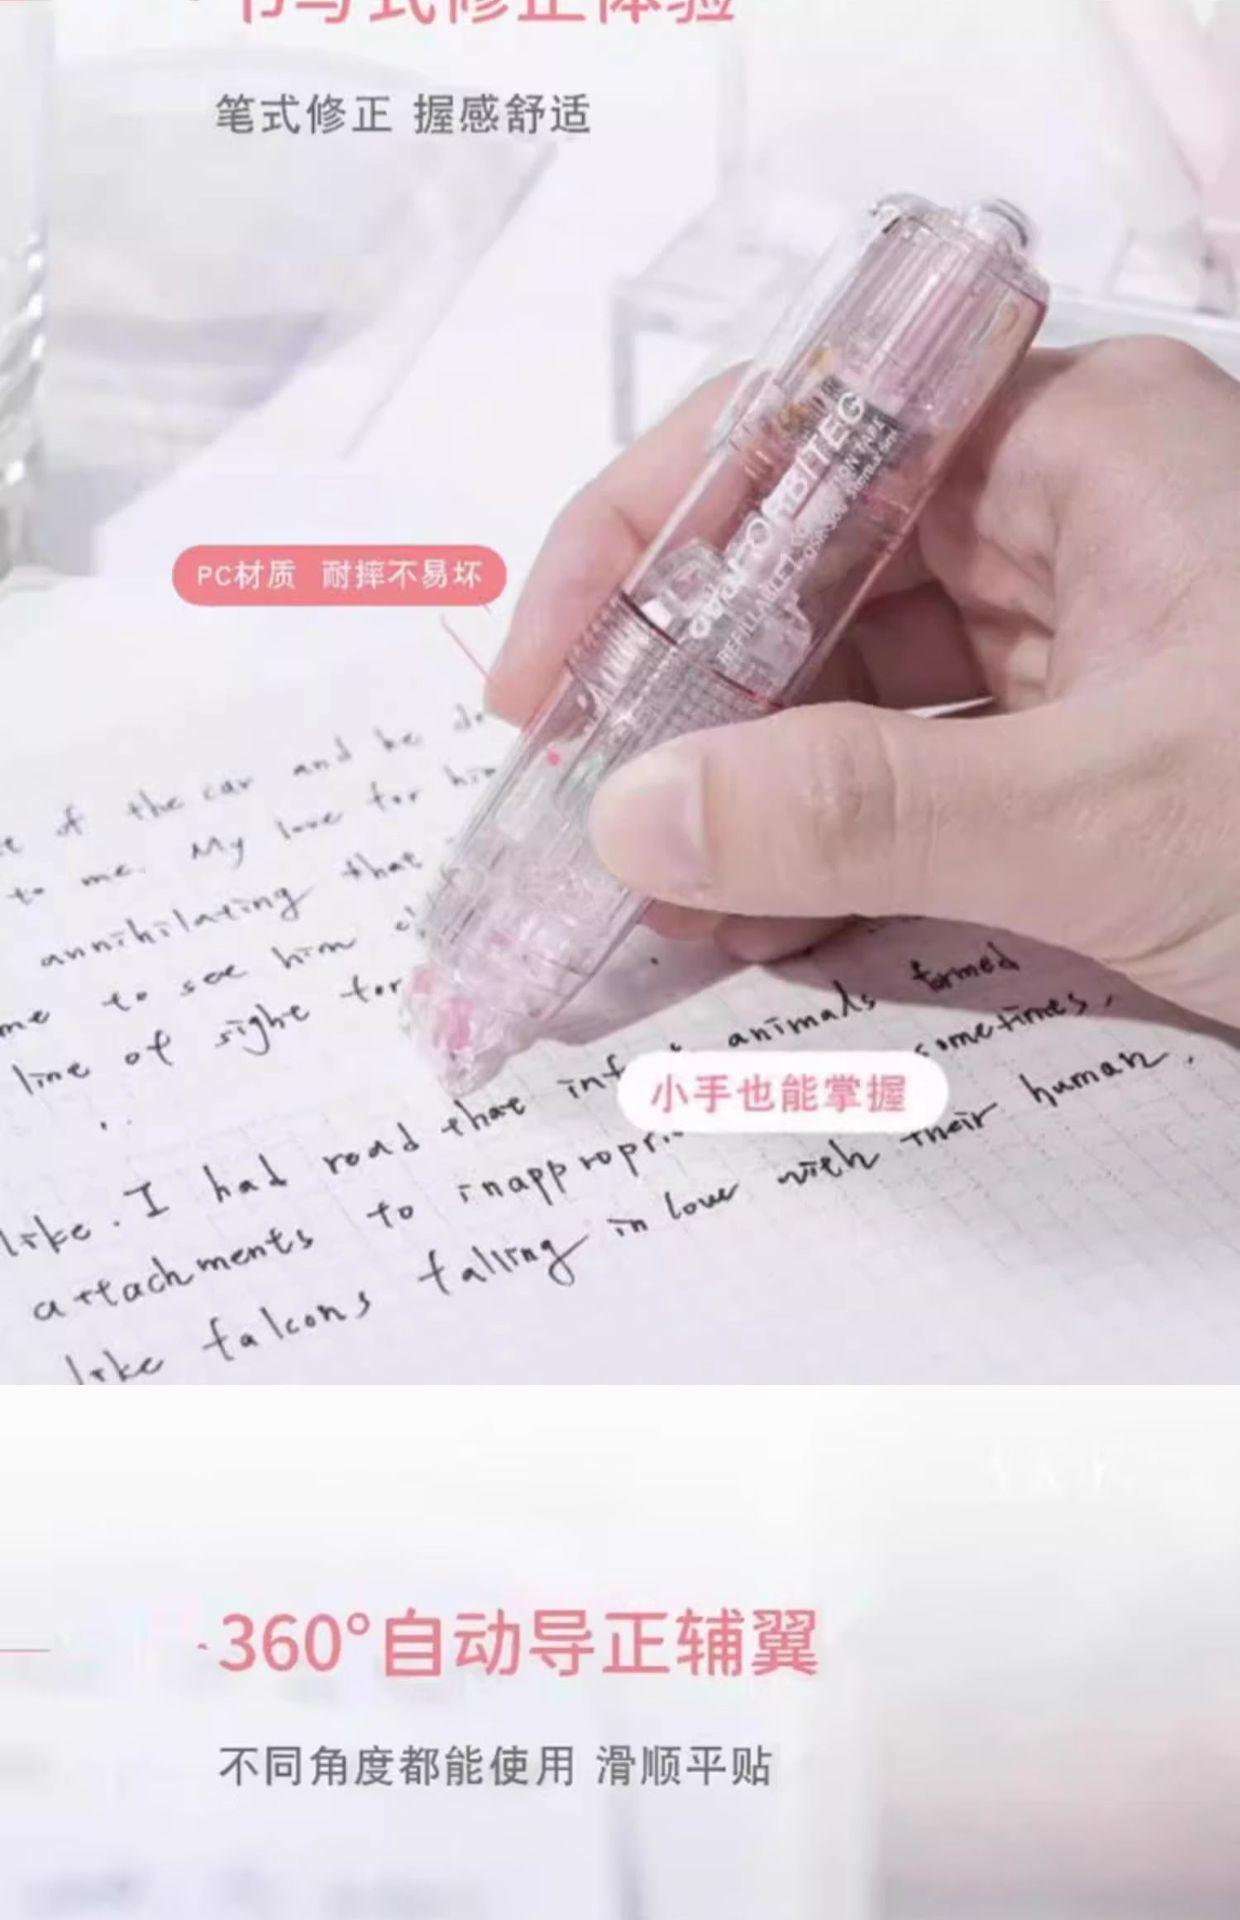 书写式修正体验
笔式修正 握感舒适
ORBITEG
REFILLABLE CORRECTION TAPE
PC材质 耐摔不易坏
of the car and he
to me. My love for him
annihilating that
me to see him
line of sight for
animals formed
小手也能掌握
like. I had read that
sometimes,
attachments to
their human,
like falcons falling in love with
360°自动导正辅翼
不同角度都能使用 滑顺平贴